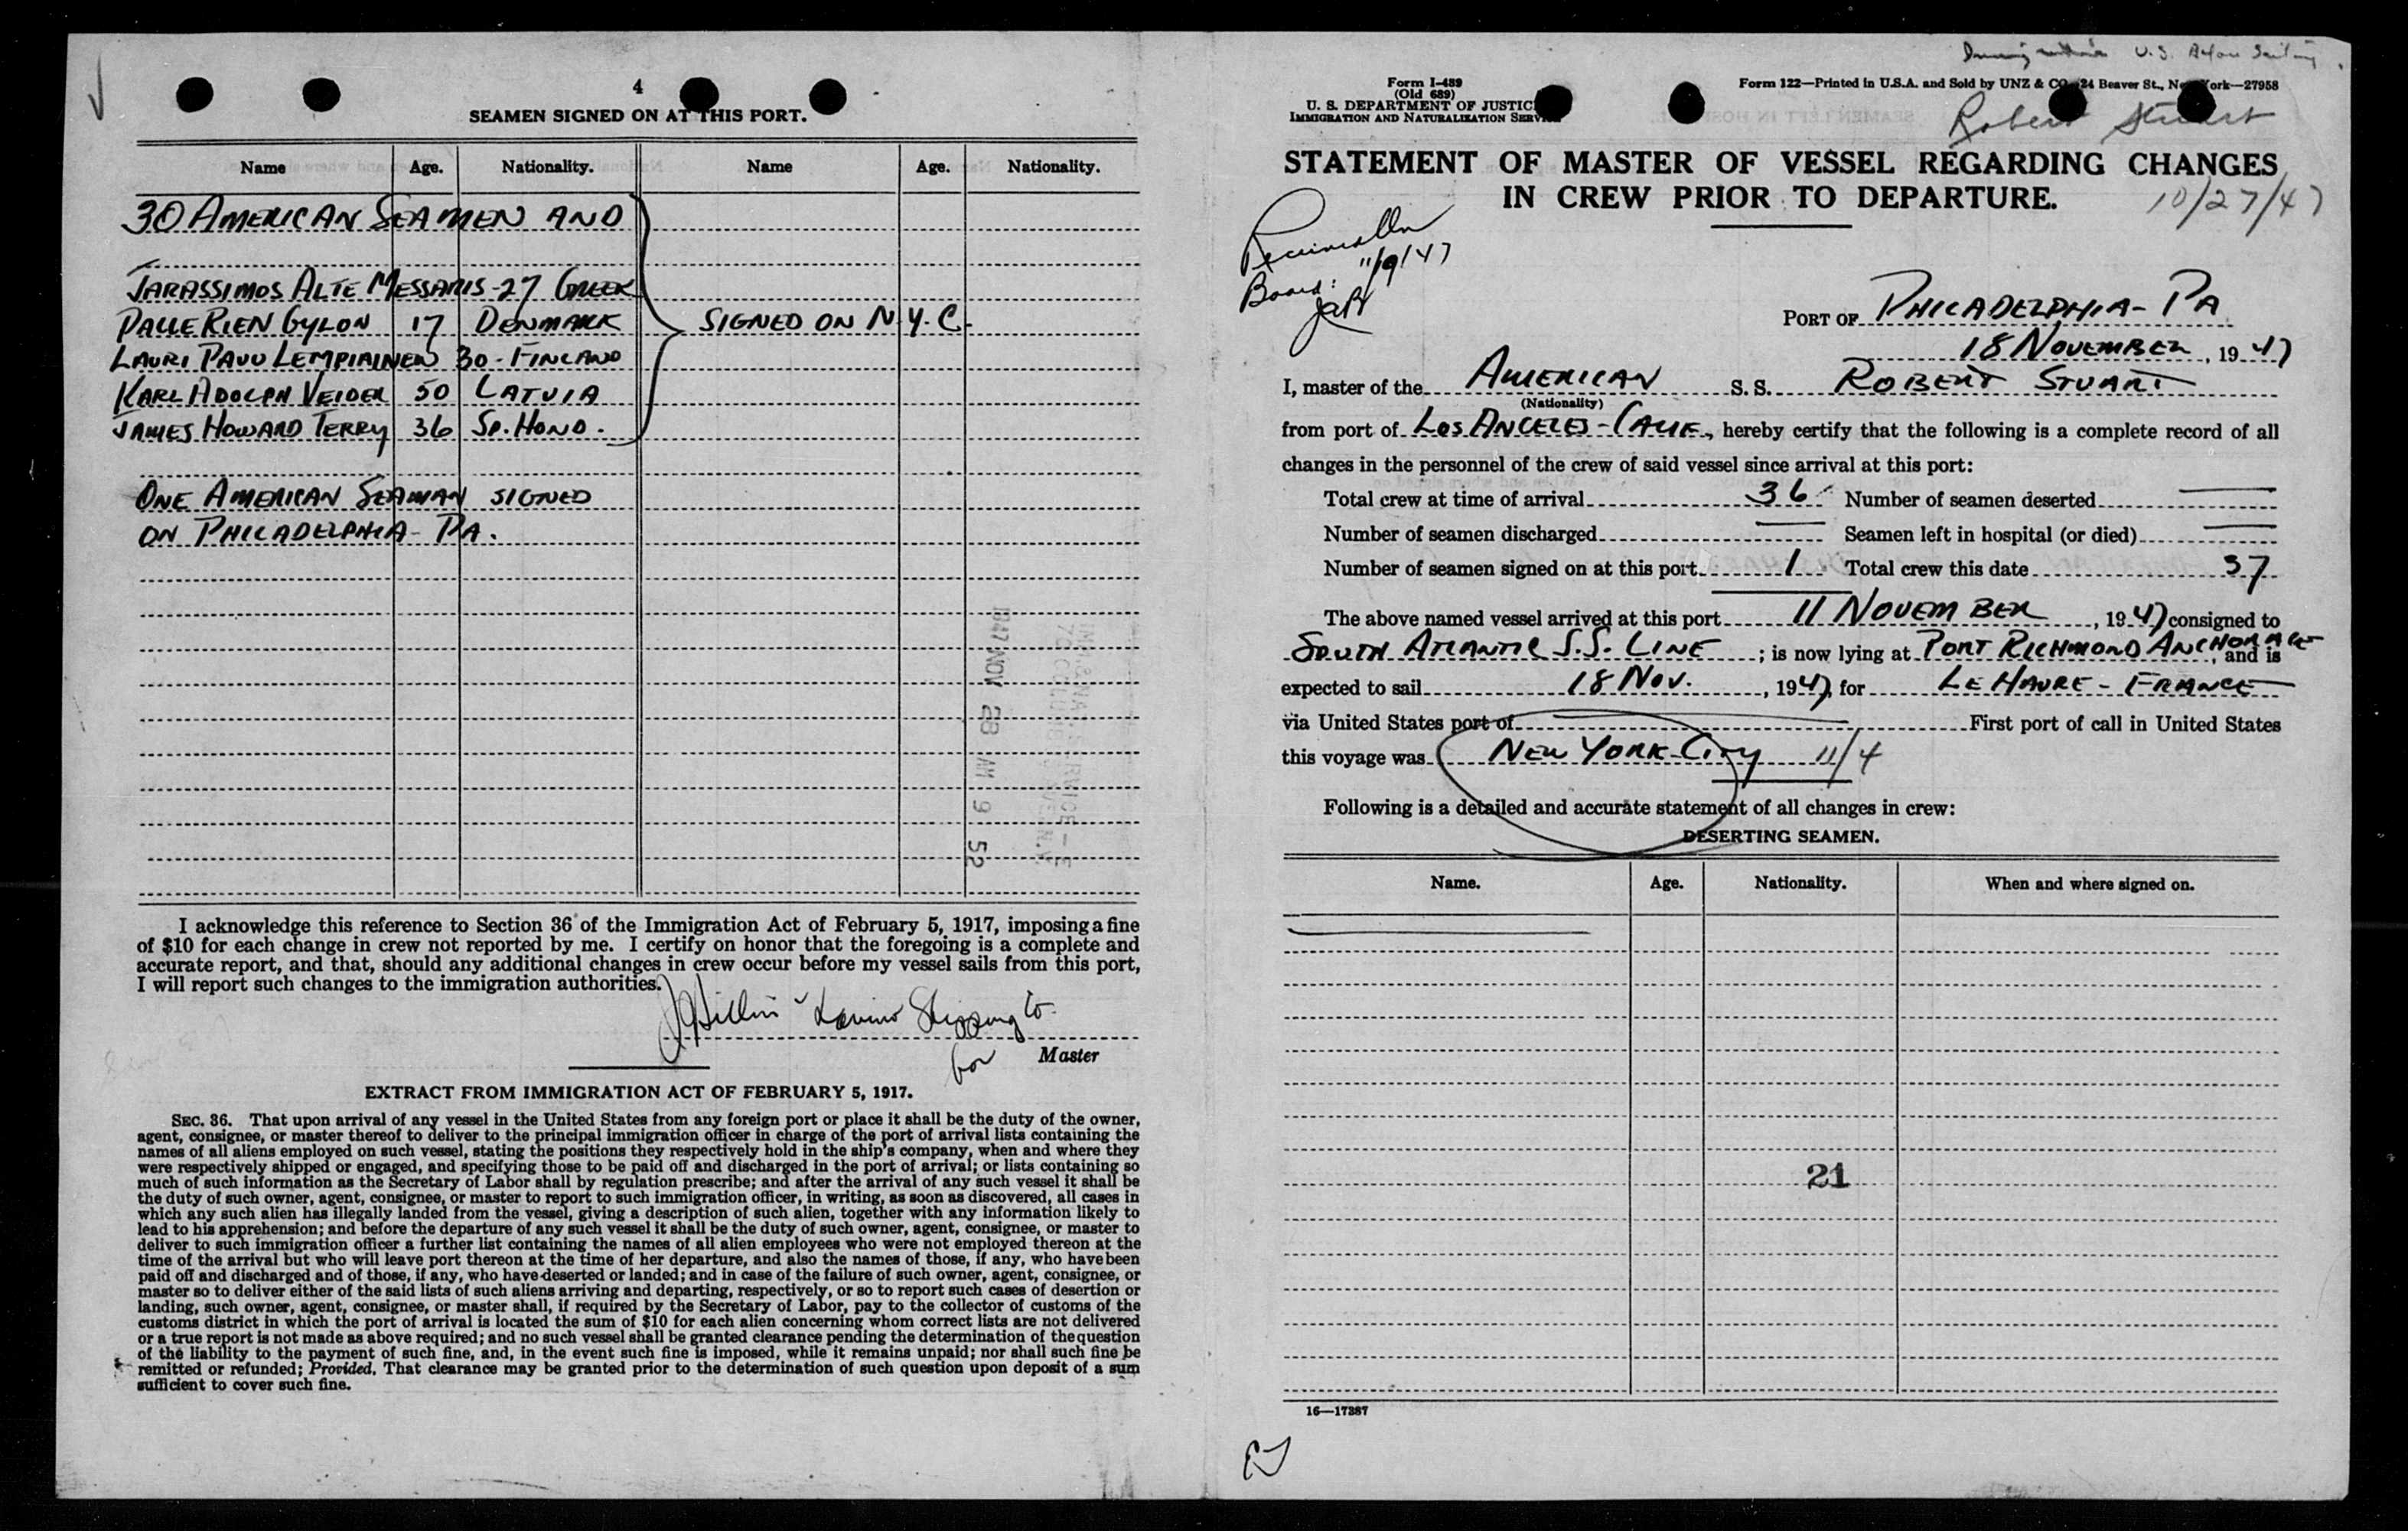 4
SEAMEN SIGNED ON AT THIS PORT.
Name Age. Nationality. Name Age. Nationality.
30 AMERICAN SEAMEN AND
JARASSIMOS ALTE MESSARIS - 27 GREEK
PALLE RIEN GYLON 17 DENMARK SIGNED ON N.Y.C.
LAURI PAVO LEMPIAINEN 30 - FINLAND
KARL ADOLPH VEIDER 50 LATVIA
JAMES HOWARD TERRY 36 SP. HOND.
ONE AMERICAN SEAMAN SIGNED
ON PHILADELPHIA - PA.
1947 NOV 28 AM 9 52
I acknowledge this reference to Section 36 of the Immigration Act of February 5, 1917, imposing a fine
of $10 for each change in crew not reported by me. I certify on honor that the foregoing is a complete and
accurate report, and that, should any additional changes in crew occur before my vessel sails from this port,
I will report such changes to the immigration authorities.
Shipping Co.
for Master
EXTRACT FROM IMMIGRATION ACT OF FEBRUARY 5, 1917.
SEC. 36. That upon arrival of any vessel in the United States from any foreign port or place it shall be the duty of the owner,
agent, consignee, or master thereof to deliver to the principal immigration officer in charge of the port of arrival lists containing the
names of all aliens employed on such vessel, stating the positions they respectively hold in the ship's company, when and where they
were respectively shipped or engaged, and specifying those to be paid off and discharged in the port of arrival; or lists containing so
much of such information as the Secretary of Labor shall by regulation prescribe; and after the arrival of any such vessel it shall be
the duty of such owner, agent, consignee, or master to report to such immigration officer, in writing, as soon as discovered, all cases in
which any such alien has illegally landed from the vessel, giving a description of such alien, together with any information likely to
lead to his apprehension; and before the departure of any such vessel it shall be the duty of such owner, agent, consignee, or master to
deliver to such immigration officer a further list containing the names of all alien employees who were not employed thereon at the
time of the arrival but who will leave port thereon at the time of her departure, and also the names of those, if any, who have been
paid off and discharged and of those, if any, who have deserted or landed; and in case of the failure of such owner, agent, consignee, or
master so to deliver either of the said lists of such aliens arriving and departing, respectively, or so to report such cases of desertion or
landing, such owner, agent, consignee, or master shall, if required by the Secretary of Labor, pay to the collector of customs of the
customs district in which the port of arrival is located the sum of $10 for each alien concerning whom correct lists are not delivered
or a true report is not made as above required; and no such vessel shall be granted clearance pending the determination of the question
of the liability to the payment of such fine, and, in the event such fine is imposed, while it remains unpaid; nor shall such fine be
remitted or refunded; Provided, That clearance may be granted prior to the determination of such question upon deposit of a sum
sufficient to cover such fine.
U.S.
Form I-489
(Old 689)
U. S. DEPARTMENT OF JUSTICE
IMMIGRATION AND NATURALIZATION SERVICE
Form 122—Printed in U.S.A. and Sold by UNZ & CO., 24 Beaver St., New York—27958
Robert Stuart
STATEMENT OF MASTER OF VESSEL REGARDING CHANGES
IN CREW PRIOR TO DEPARTURE.
10/27/47
Board: 11/9/47
PORT OF PHILADELPHIA - PA
18 NOVEMBER, 1947
I, master of the AMERICAN S. S. ROBERT STUART
(Nationality)
from port of LOS ANGELES - CALIF., hereby certify that the following is a complete record of all
changes in the personnel of the crew of said vessel since arrival at this port:
Total crew at time of arrival 36 Number of seamen deserted —
Number of seamen discharged — Seamen left in hospital (or died) —
Number of seamen signed on at this port 1 Total crew this date 37
The above named vessel arrived at this port 11 NOVEMBER, 1947 consigned to
SOUTH ATLANTIC S.S. LINE; is now lying at PORT RICHMOND ANCHORAGE, and is
expected to sail 18 NOV., 1947, for LE HAVRE - FRANCE
via United States port of — First port of call in United States
this voyage was NEW YORK CITY 11/4
Following is a detailed and accurate statement of all changes in crew:
DESERTING SEAMEN.
Name. Age. Nationality. When and where signed on.
21
16—17387